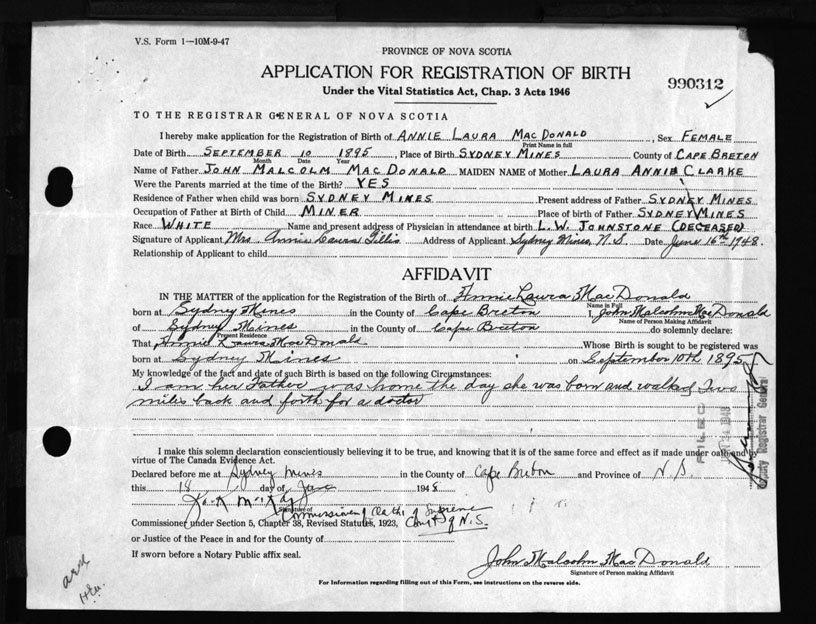 V.S. Form 1—10M-9-47
PROVINCE OF NOVA SCOTIA
APPLICATION FOR REGISTRATION OF BIRTH
990312
Under the Vital Statistics Act, Chap. 3 Acts 1946
TO THE REGISTRAR GENERAL OF NOVA SCOTIA
I hereby make application for the Registration of Birth of ANNIE LAURA MACDONALD, Sex FEMALE
Print Name in full
Date of Birth SEPTEMBER 10 1895, Place of Birth SYDNEY MINES County of CAPE BRETON
Month Date Year
Name of Father JOHN MALCOLM MACDONALD MAIDEN NAME of Mother LAURA ANNIE CLARKE
Were the Parents married at the time of the Birth? YES
Residence of Father when child was born SYDNEY MINES Present address of Father SYDNEY MINES
Occupation of Father at Birth of Child MINER Place of birth of Father SYDNEY MINES
Race WHITE Name and present address of Physician in attendance at birth L. W. JOHNSTONE (DECEASED)
Signature of Applicant Mrs. Annie Laura Gillis Address of Applicant Sydney Mines, N.S. Date June 16th 1948.
Relationship of Applicant to child
AFFIDAVIT
IN THE MATTER of the application for the Registration of the Birth of Annie Laura MacDonald
Name in Full
born at Sydney Mines in the County of Cape Breton I, John Malcolm MacDonald
Name of Person Making Affidavit
of Sydney Mines in the County of Cape Breton do solemnly declare:
Present Residence
That Annie Laura MacDonald Whose Birth is sought to be registered was
born at Sydney Mines on September 10th 1895
My knowledge of the fact and date of such Birth is based on the following Circumstances:
I am her Father was home the day she was born and walked Two
miles back and forth for a doctor
I make this solemn declaration conscientiously believing it to be true, and knowing that it is of the same force and effect as if made under oath and by
virtue of The Canada Evidence Act.
Declared before me at Sydney Mines in the County of Cape Breton and Province of N.S.
this 18 day of June 1948
Signature of
Commissioner of Oaths of Supreme
Commissioner under Section 5, Chapter 38, Revised Statutes, 1923, Court of N.S.
or Justice of the Peace in and for the County of
If sworn before a Notary Public affix seal.
John Malcolm MacDonald
Signature of Person making Affidavit
For Information regarding filling out of this Form, see instructions on the reverse side.
FILED
Deputy Registrar General